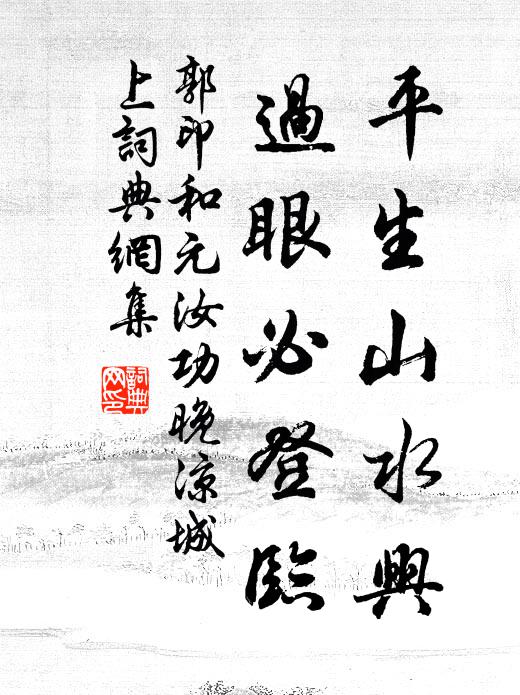 平生山水興
過眼必登臨
郭印和元汝功晚涼城
上詞典網集
詞典
网印